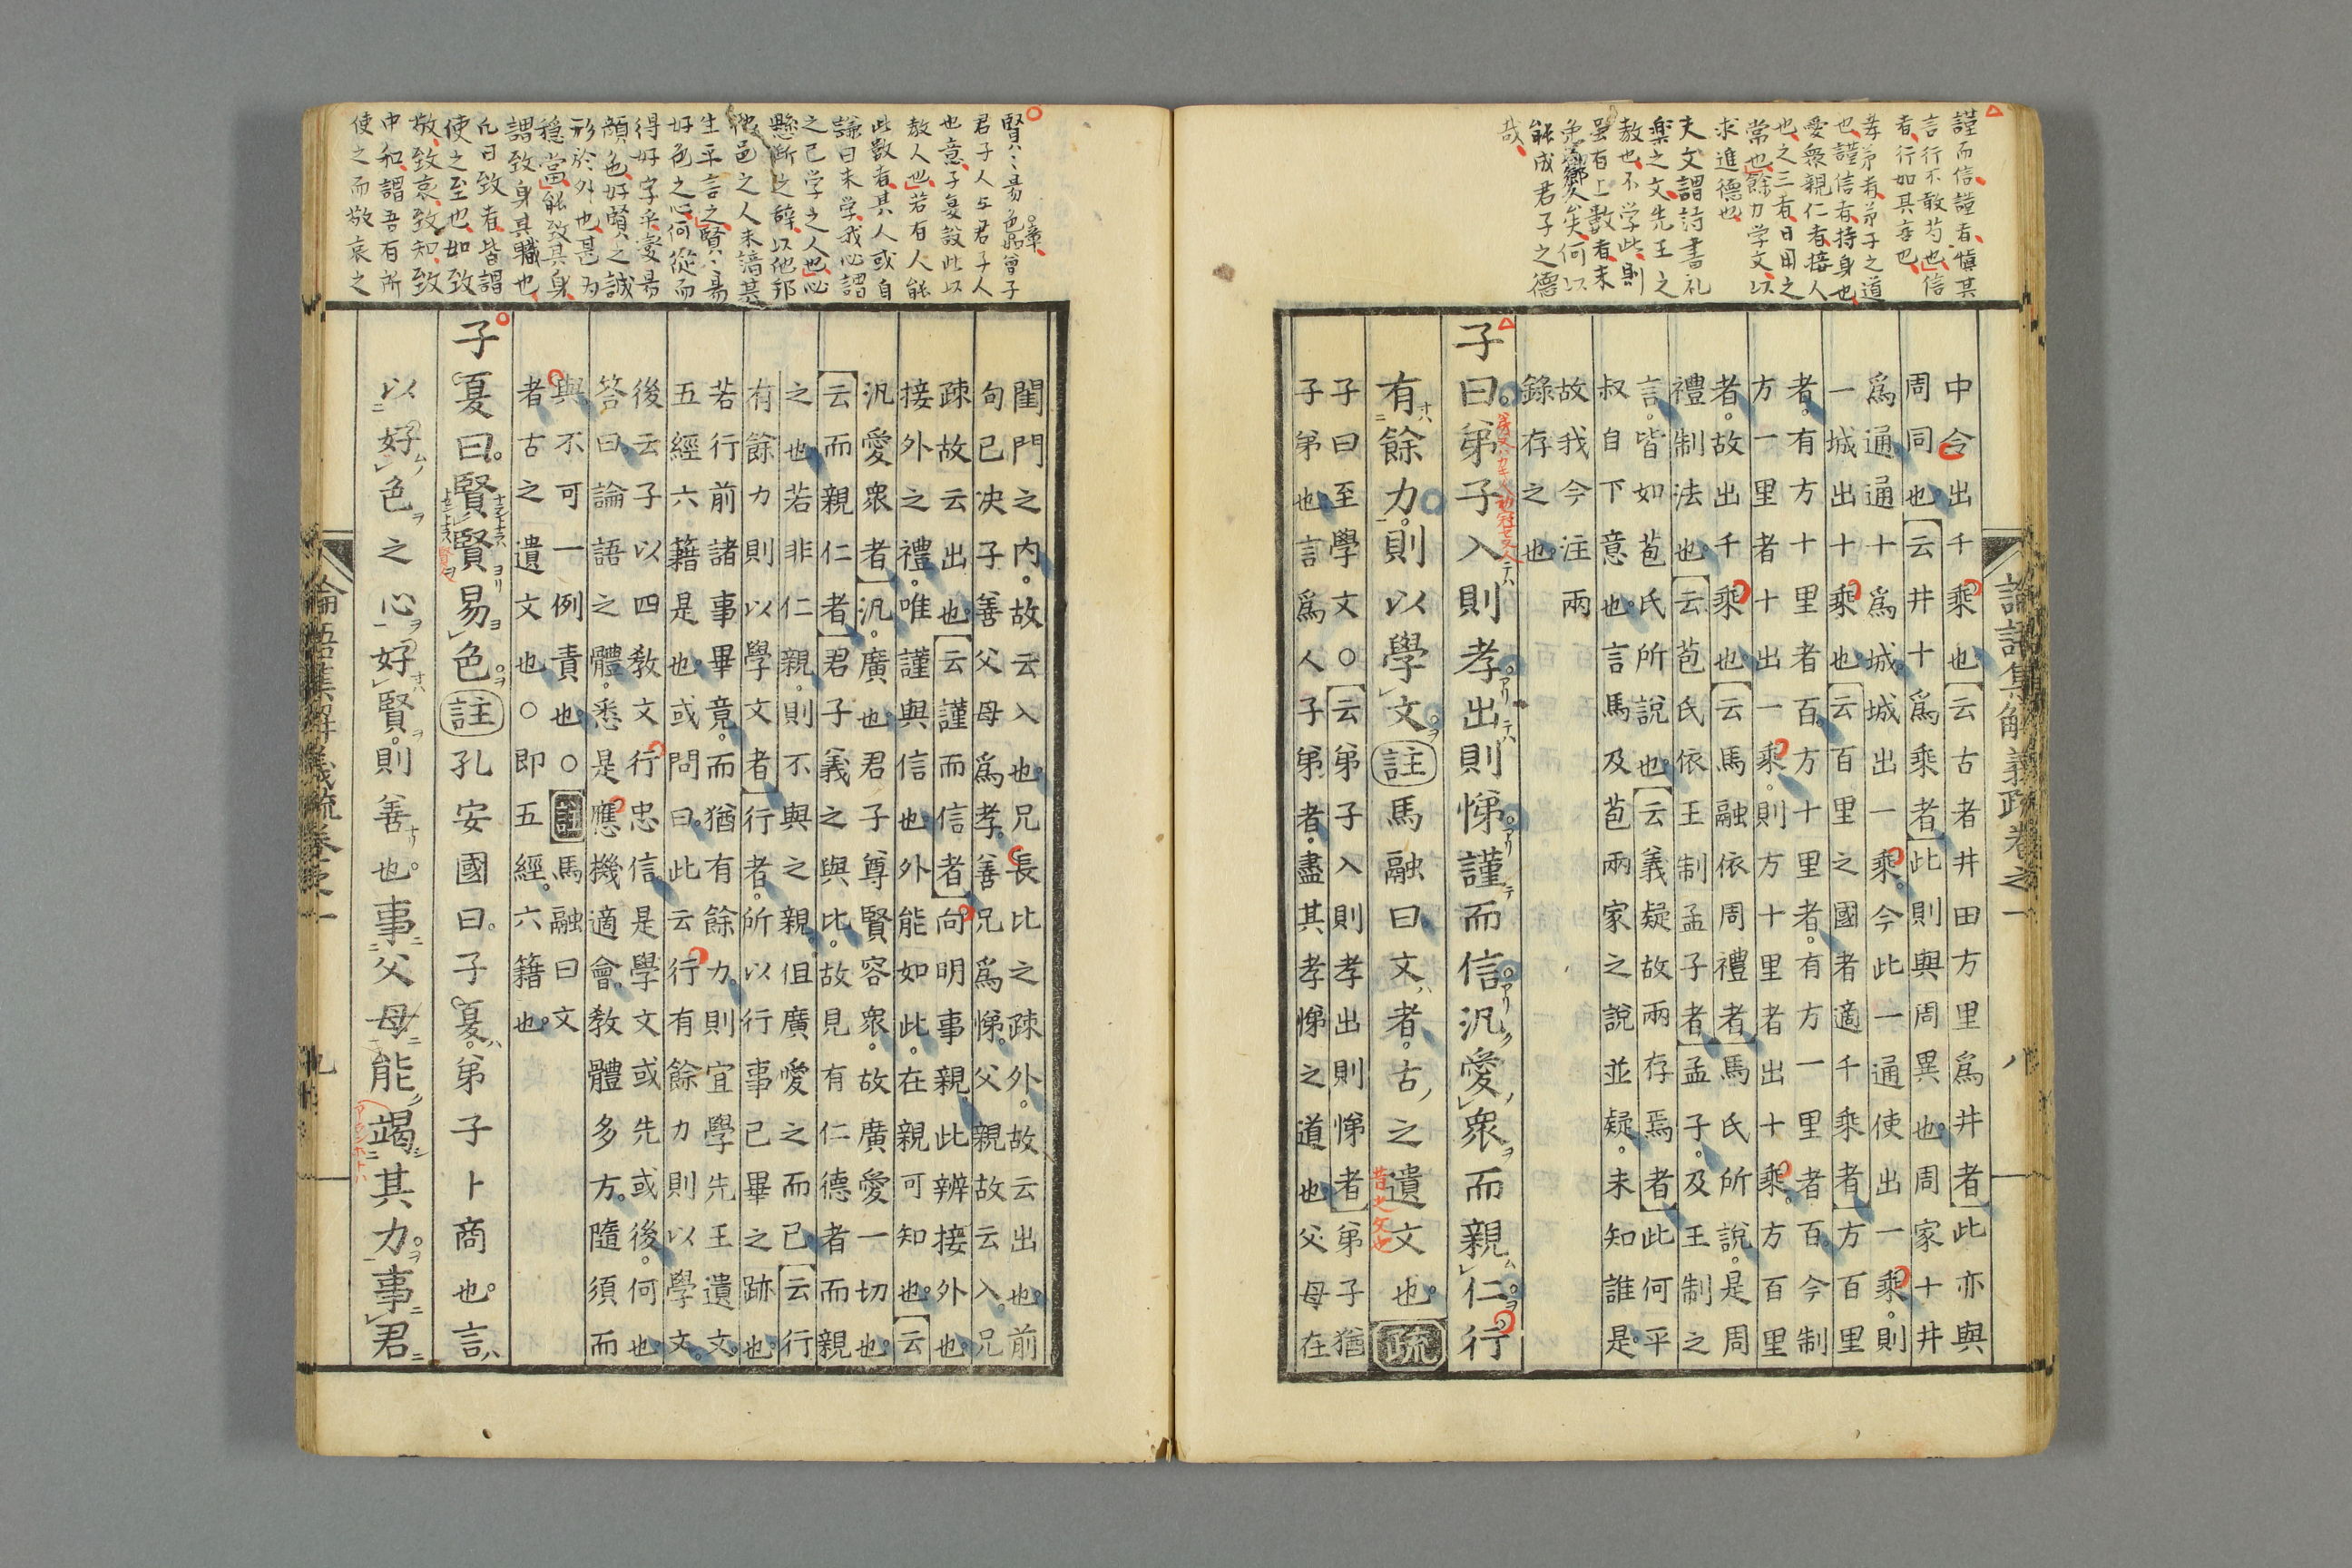 謹而信謹者慎其
言行不敢苟也信
者行如其言也
孝弟者弟子之道
也謹信者持身也
愛衆親仁者接人
也之三者日用之
常也餘力学文以
求進德也
夫文謂詩書礼
楽之文先王之
教也不学此則
雖有上数者未
免鄉人矣何以
能成君子之德
哉
論語集解義疏卷之一 八
中令出千乘也云古者井田方里爲井者此亦與
周同也云井十爲乘者此則與周異也周家十井
爲通通十爲城城出一乘今此一通使出一乘則
一城出十乘也云百里之國者適千乘者方百里
者有方十里者百方十里者有方一里者百今制
方一里者十出一乘則方十里者出十乘方百里
者故出千乘也云馬融依周禮者馬氏所說是周
禮制法也云苞氏依王制孟子者孟子及王制之
言皆如苞氏所說也云義疑故兩存焉者此何平
叔自下意也言馬及苞兩家之說並疑未知誰是
故我今注兩
錄存之也
子曰弟子入則孝出則悌謹而信汎愛衆而親仁行
有餘力則以學文註馬融曰文者古之遺文也疏
子曰至學文○云弟子入則孝出則悌者弟子猶
子弟也言爲人子弟者盡其孝悌之道也父母在
賢賢易色章曾子
君子人与君子人
也意子夏設此以
教人也若有人能
此数者其人或自
謙曰未学我必謂
之已学之人也必
懸断之辞以他邦
他邑之人未諳其
生平言之賢賢易
好色之心何從而
得好字乎蓋易
顔色好賢之誠
形於外也甚为
穏當能致其身
謂致身其職也
凡曰致者皆謂
使之至也如致
敬致哀致知致
中和謂吾有所
使之而敬哀之
閨門之内故云入也兄長比之疎外故云出也前
句已决子善父母爲孝善兄爲悌父親故云入兄
疎故云出也云謹而信者向明事親此辨接外也
接外之禮唯謹與信也外能如此在親可知也云
汎愛衆者汎廣也君子尊賢容衆故廣愛一切也
云而親仁者君子義之與比故見有仁德者而親
之也若非仁親則不與之親但廣愛之而已云行
有餘力則以學文者行者所以行事已畢之跡也
若行前諸事畢竟而猶有餘力則宜學先王遺文
五經六籍是也或問曰此云行有餘力則以學文
後云子以四教文行忠信是學文或先或後何也
答曰論語之體悉是應機適會教體多方隨須而
與不可一例責也○註馬融曰文
者古之遺文也○即五經六籍也
子夏曰賢賢易色註孔安國曰子夏弟子卜商也言
以好色之心好賢則善也事父母能竭其力事君
論語集解義疏卷之一 九